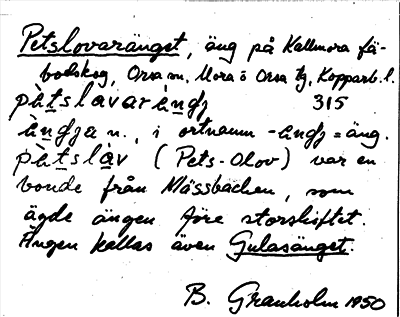 Petslovaränget, äng på Kallmora fä-
bodskog, Orsa sn, Mora o Orsa tg, Kopparb. l.
pàtslavaràngj 315
àngja n., i ortnamn -àngj = äng.
pàtslàv (Pets-Olov) var en
bonde från Mässbacken, som
ägde ängen före storskiftet.
Ängen kallas även Gulasänget.
B. Granholm 1950